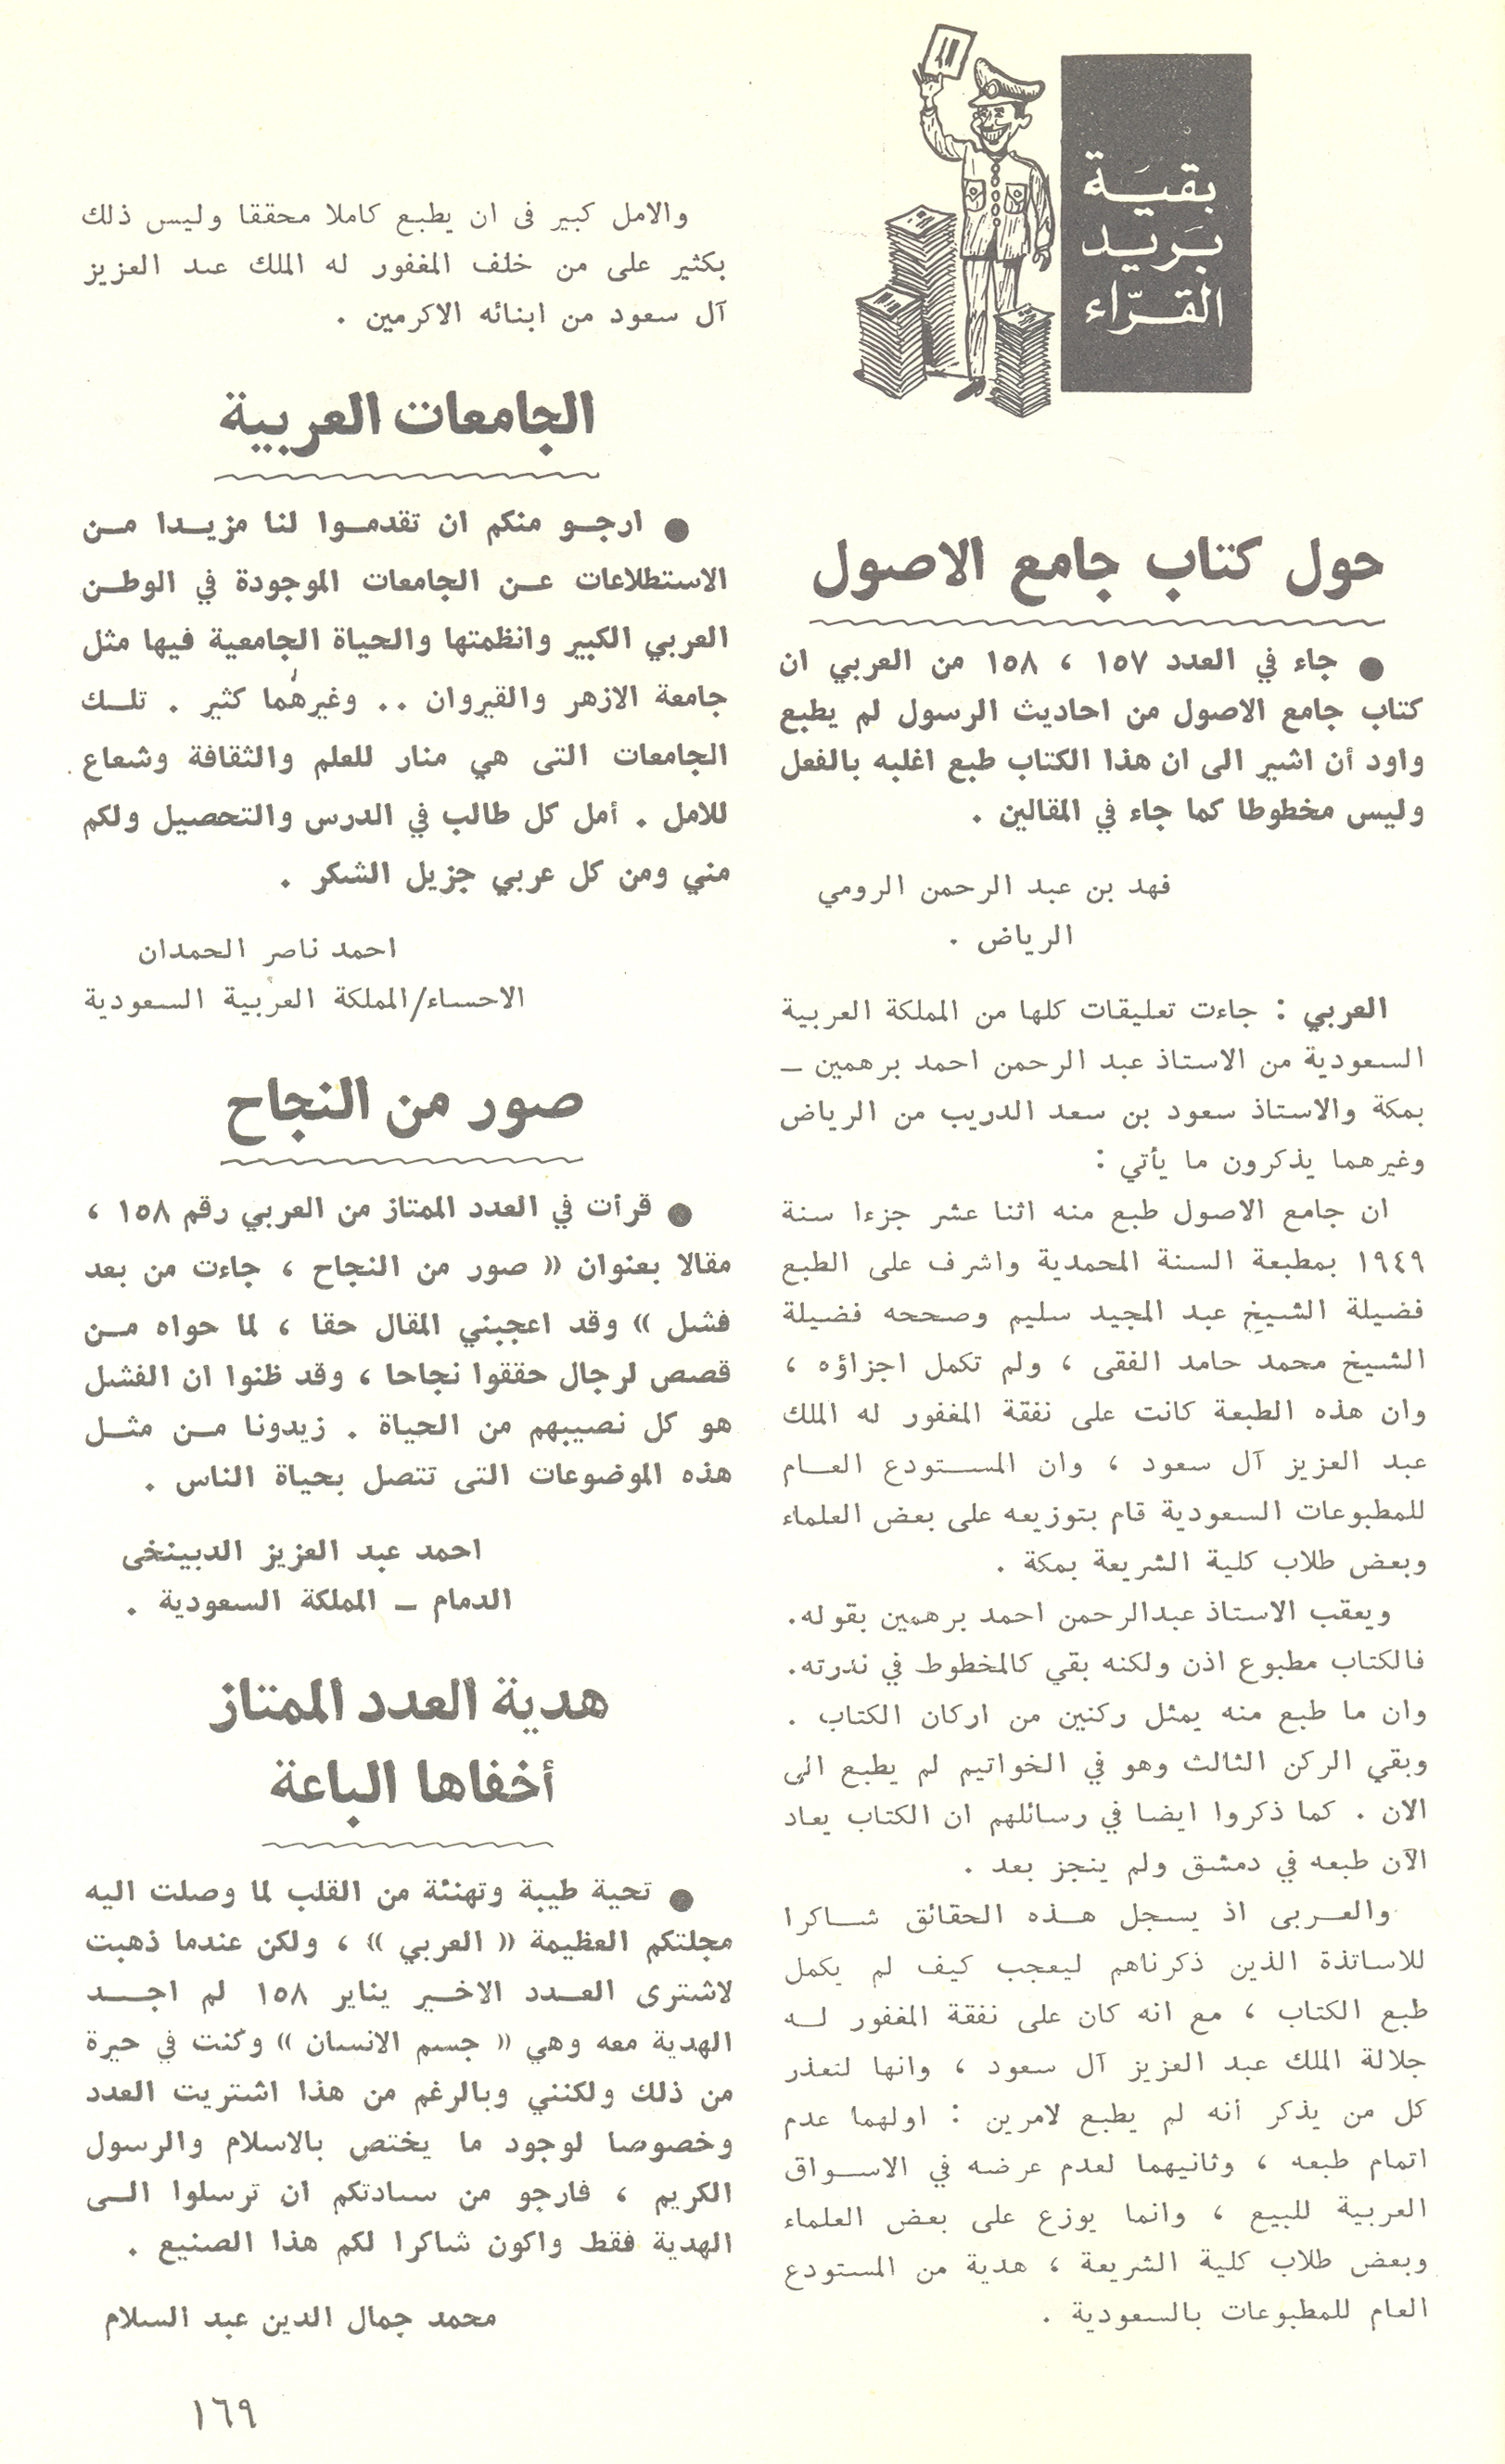 بقية
بريد
القرّاء
حول كتاب جامع الاصول
● جاء في العدد ١٥٧ ، ١٥٨ من العربي ان
كتاب جامع الاصول من احاديث الرسول لم يطبع
واود أن اشير الى ان هذا الكتاب طبع اغلبه بالفعل
وليس مخطوطا كما جاء في المقالين .
فهد بن عبد الرحمن الرومي
الرياض .
العربي : جاءت تعليقات كلها من المملكة العربية
السعودية من الاستاذ عبد الرحمن احمد برهمين ـ
بمكة والاستاذ سعود بن سعد الدريب من الرياض
وغيرهما يذكرون ما يأتي :
ان جامع الاصول طبع منه اثنا عشر جزءا سنة
١٩٤٩ بمطبعة السنة المحمدية واشرف على الطبع
فضيلة الشيخ عبد المجيد سليم وصححه فضيلة
الشيخ محمد حامد الفقى ، ولم تكمل اجزاؤه ،
وان هذه الطبعة كانت على نفقة المغفور له الملك
عبد العزيز آل سعود ، وان المستودع العام
للمطبوعات السعودية قام بتوزيعه على بعض العلماء
وبعض طلاب كلية الشريعة بمكة .
ويعقب الاستاذ عبدالرحمن احمد برهمين بقوله.
فالكتاب مطبوع اذن ولكنه بقي كالمخطوط في ندرته.
وان ما طبع منه يمثل ركنين من اركان الكتاب .
وبقي الركن الثالث وهو في الخواتيم لم يطبع الى
الان . كما ذكروا ايضا في رسائلهم ان الكتاب يعاد
الآن طبعه في دمشق ولم ينجز بعد .
والعربى اذ يسجل هذه الحقائق شاكرا
للاساتذة الذين ذكرناهم ليعجب كيف لم يكمل
طبع الكتاب ، مع انه كان على نفقة المغفور له
جلالة الملك عبد العزيز آل سعود ، وانها لتعذر
كل من يذكر أنه لم يطبع لامرين : اولهما عدم
اتمام طبعه ، وثانيهما لعدم عرضه في الاسواق
العربية للبيع ، وانما يوزع على بعض العلماء
وبعض طلاب كلية الشريعة ، هدية من المستودع
العام للمطبوعات بالسعودية .
والامل كبير فى ان يطبع كاملا محققا وليس ذلك
بكثير على من خلف المغفور له الملك عبد العزيز
آل سعود من ابنائه الاكرمين .
الجامعات العربية
● ارجو منكم ان تقدموا لنا مزيدا من
الاستطلاعات عن الجامعات الموجودة في الوطن
العربي الكبير وانظمتها والحياة الجامعية فيها مثل
جامعة الازهر والقيروان .. وغيرهما كثير . تلك
الجامعات التى هي منار للعلم والثقافة وشعاع
للامل . أمل كل طالب في الدرس والتحصيل ولكم
مني ومن كل عربي جزيل الشكر .
احمد ناصر الحمدان
الاحساء/المملكة العربية السعودية
صور من النجاح
● قرأت في العدد الممتاز من العربي رقم ١٥٨ ،
مقالا بعنوان « صور من النجاح ، جاءت من بعد
فشل » وقد اعجبني المقال حقا ، لما حواه من
قصص لرجال حققوا نجاحا ، وقد ظنوا ان الفشل
هو كل نصيبهم من الحياة . زيدونا من مثل
هذه الموضوعات التى تتصل بحياة الناس .
احمد عبد العزيز الدبينخى
الدمام ـ المملكة السعودية .
هدية العدد الممتاز
أخفاها الباعة
● تحية طيبة وتهنئة من القلب لما وصلت اليه
مجلتكم العظيمة « العربي » ، ولكن عندما ذهبت
لاشترى العدد الاخير يناير ١٥٨ لم اجد
الهدية معه وهي « جسم الانسان » وكنت في حيرة
من ذلك ولكنني وبالرغم من هذا اشتريت العدد
وخصوصا لوجود ما يختص بالاسلام والرسول
الكريم ، فارجو من سادتكم ان ترسلوا الى
الهدية فقط واكون شاكرا لكم هذا الصنيع .
محمد جمال الدين عبد السلام
١٦٩